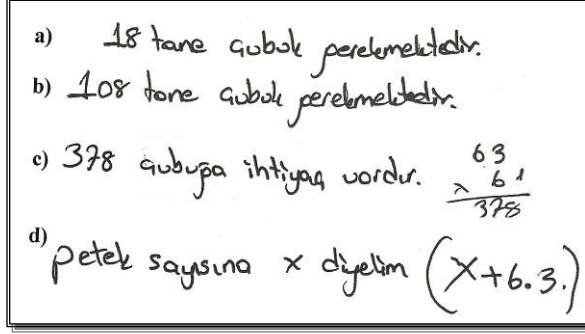 a) 18 tane çubuk gerekmektedir.
b) 108 tane çubuk gerekmektedir.
c) 378 çubuğa ihtiyaç vardır. 63
x 61
378
d) petek sayısına x diyelim (x+6.3.)